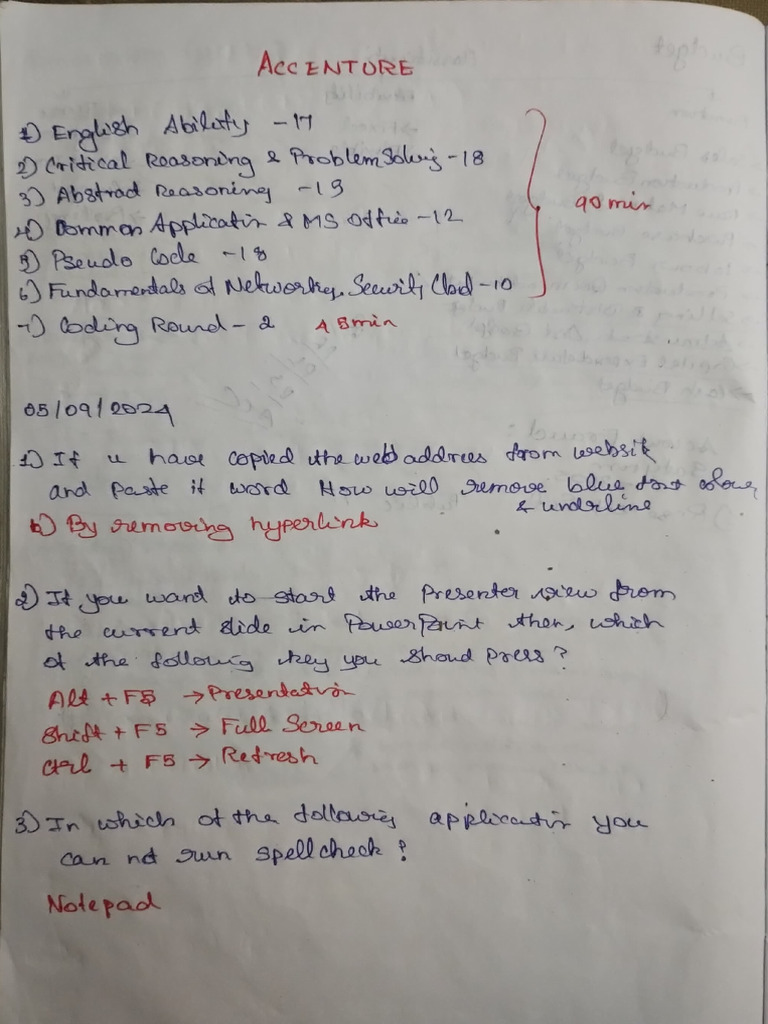 ACCENTURE
1) English Ability - 17
2) Critical Reasoning & Problem Solvig - 18
3) Abstrad Reasoning - 15
4) Common Applicatin & MS Office - 12
90 min
5) Pseudo Code - 18
6) Fundamentals of Networkg, Securitj Clod - 10
7) Coding Round - 2 45min
05/09/2024
1) If u have copied the web address from websit
and paste it word How will remove blue font colour
& undrline
b) By removing hyperlink
2) If you want to start the Presenter view from
the current slide in PowerPoint then, which
of the following key you shoud press?
Alt + F5 → Presentation
Shift + F5 → Full Screen
Ctrl + F5 → Refresh
3) In which of the following applicatin you
can not run spellcheck?
Notepad